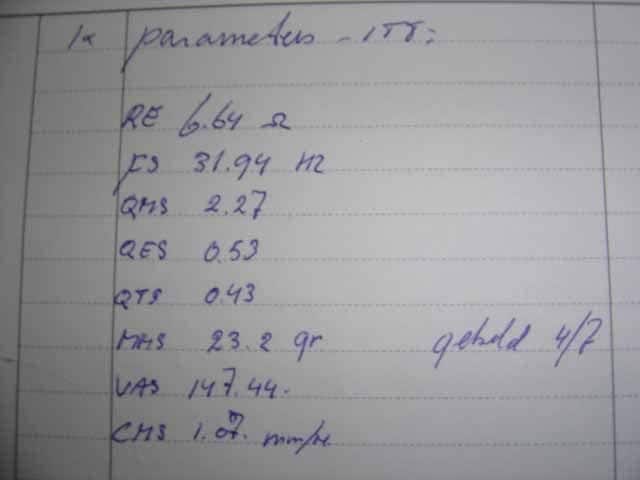 1x parameters - ITT:
RE 6.64 Ω
FS 31.94 HZ
QMS 2.27
QES 0.53
QTS 0.43
MMS 23.2 gr. gebeld 4/7
VAS 147.44.
CMS 1.07. mm/N.